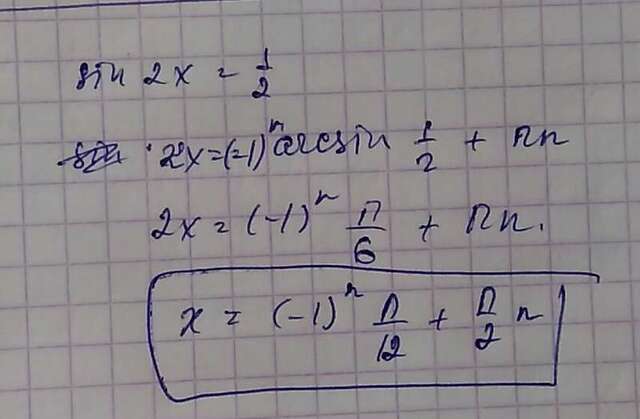 sin 2x = 1/2
2x = (-1)^n arcsin 1/2 + πn
2x = (-1)^n π/6 + πn.
x = (-1)^n π/12 + π/2 n